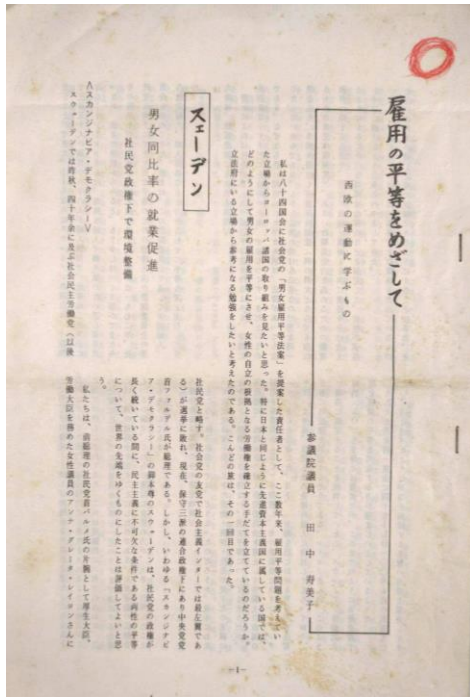 雇用の平等をめざして
西欧の運動に学ぶもの
参議院議員 田中寿美子
私は八十四国会に社会党の「男女雇用平等法案」を提案した責任者として、ここ数年来、雇用平等問題を考えてい
た立場からヨーロッパ諸国の取り組みを見たいと思った。特に日本と同じように先進資本主義国に属している国では、
どのようにして男女の雇用を平等にさせ、女性の自立の根拠となる労働権を確立する手だてを立てているのだろうか。
立法府にいる立場から参考になる勉強をしたいと考えたのである。こんどの旅は、その一回目であった。
スェーデン
男女同比率の就業促進
社民党政権下で環境整備
＜スカンジナビア・デモクラシー＞
スウェーデンでは昨秋、四十年余に及ぶ社会民主労働党（以後
社民党と略す。社会党の友党で社会主義インターでは最左翼であ
る）が選挙に敗れ、現在、保守三派の連合政権下にあり中央党党
首ファルデル氏が総理である。しかし、いわゆる「スカンジナビ
ア・デモクラシー」の御本尊のスウェーデンは、社民党の政権が
長く続いている間に、民主主義に不可欠な条件である両性の平等
について、世界の先端をゆくものにしたことは評価してよいと思
う。
私たちは、前総理の社民党首パルメ氏の片腕として厚生大臣、
労働大臣を務めた女性議員のアンナ・グレータ・レイヨンさんに
—1—